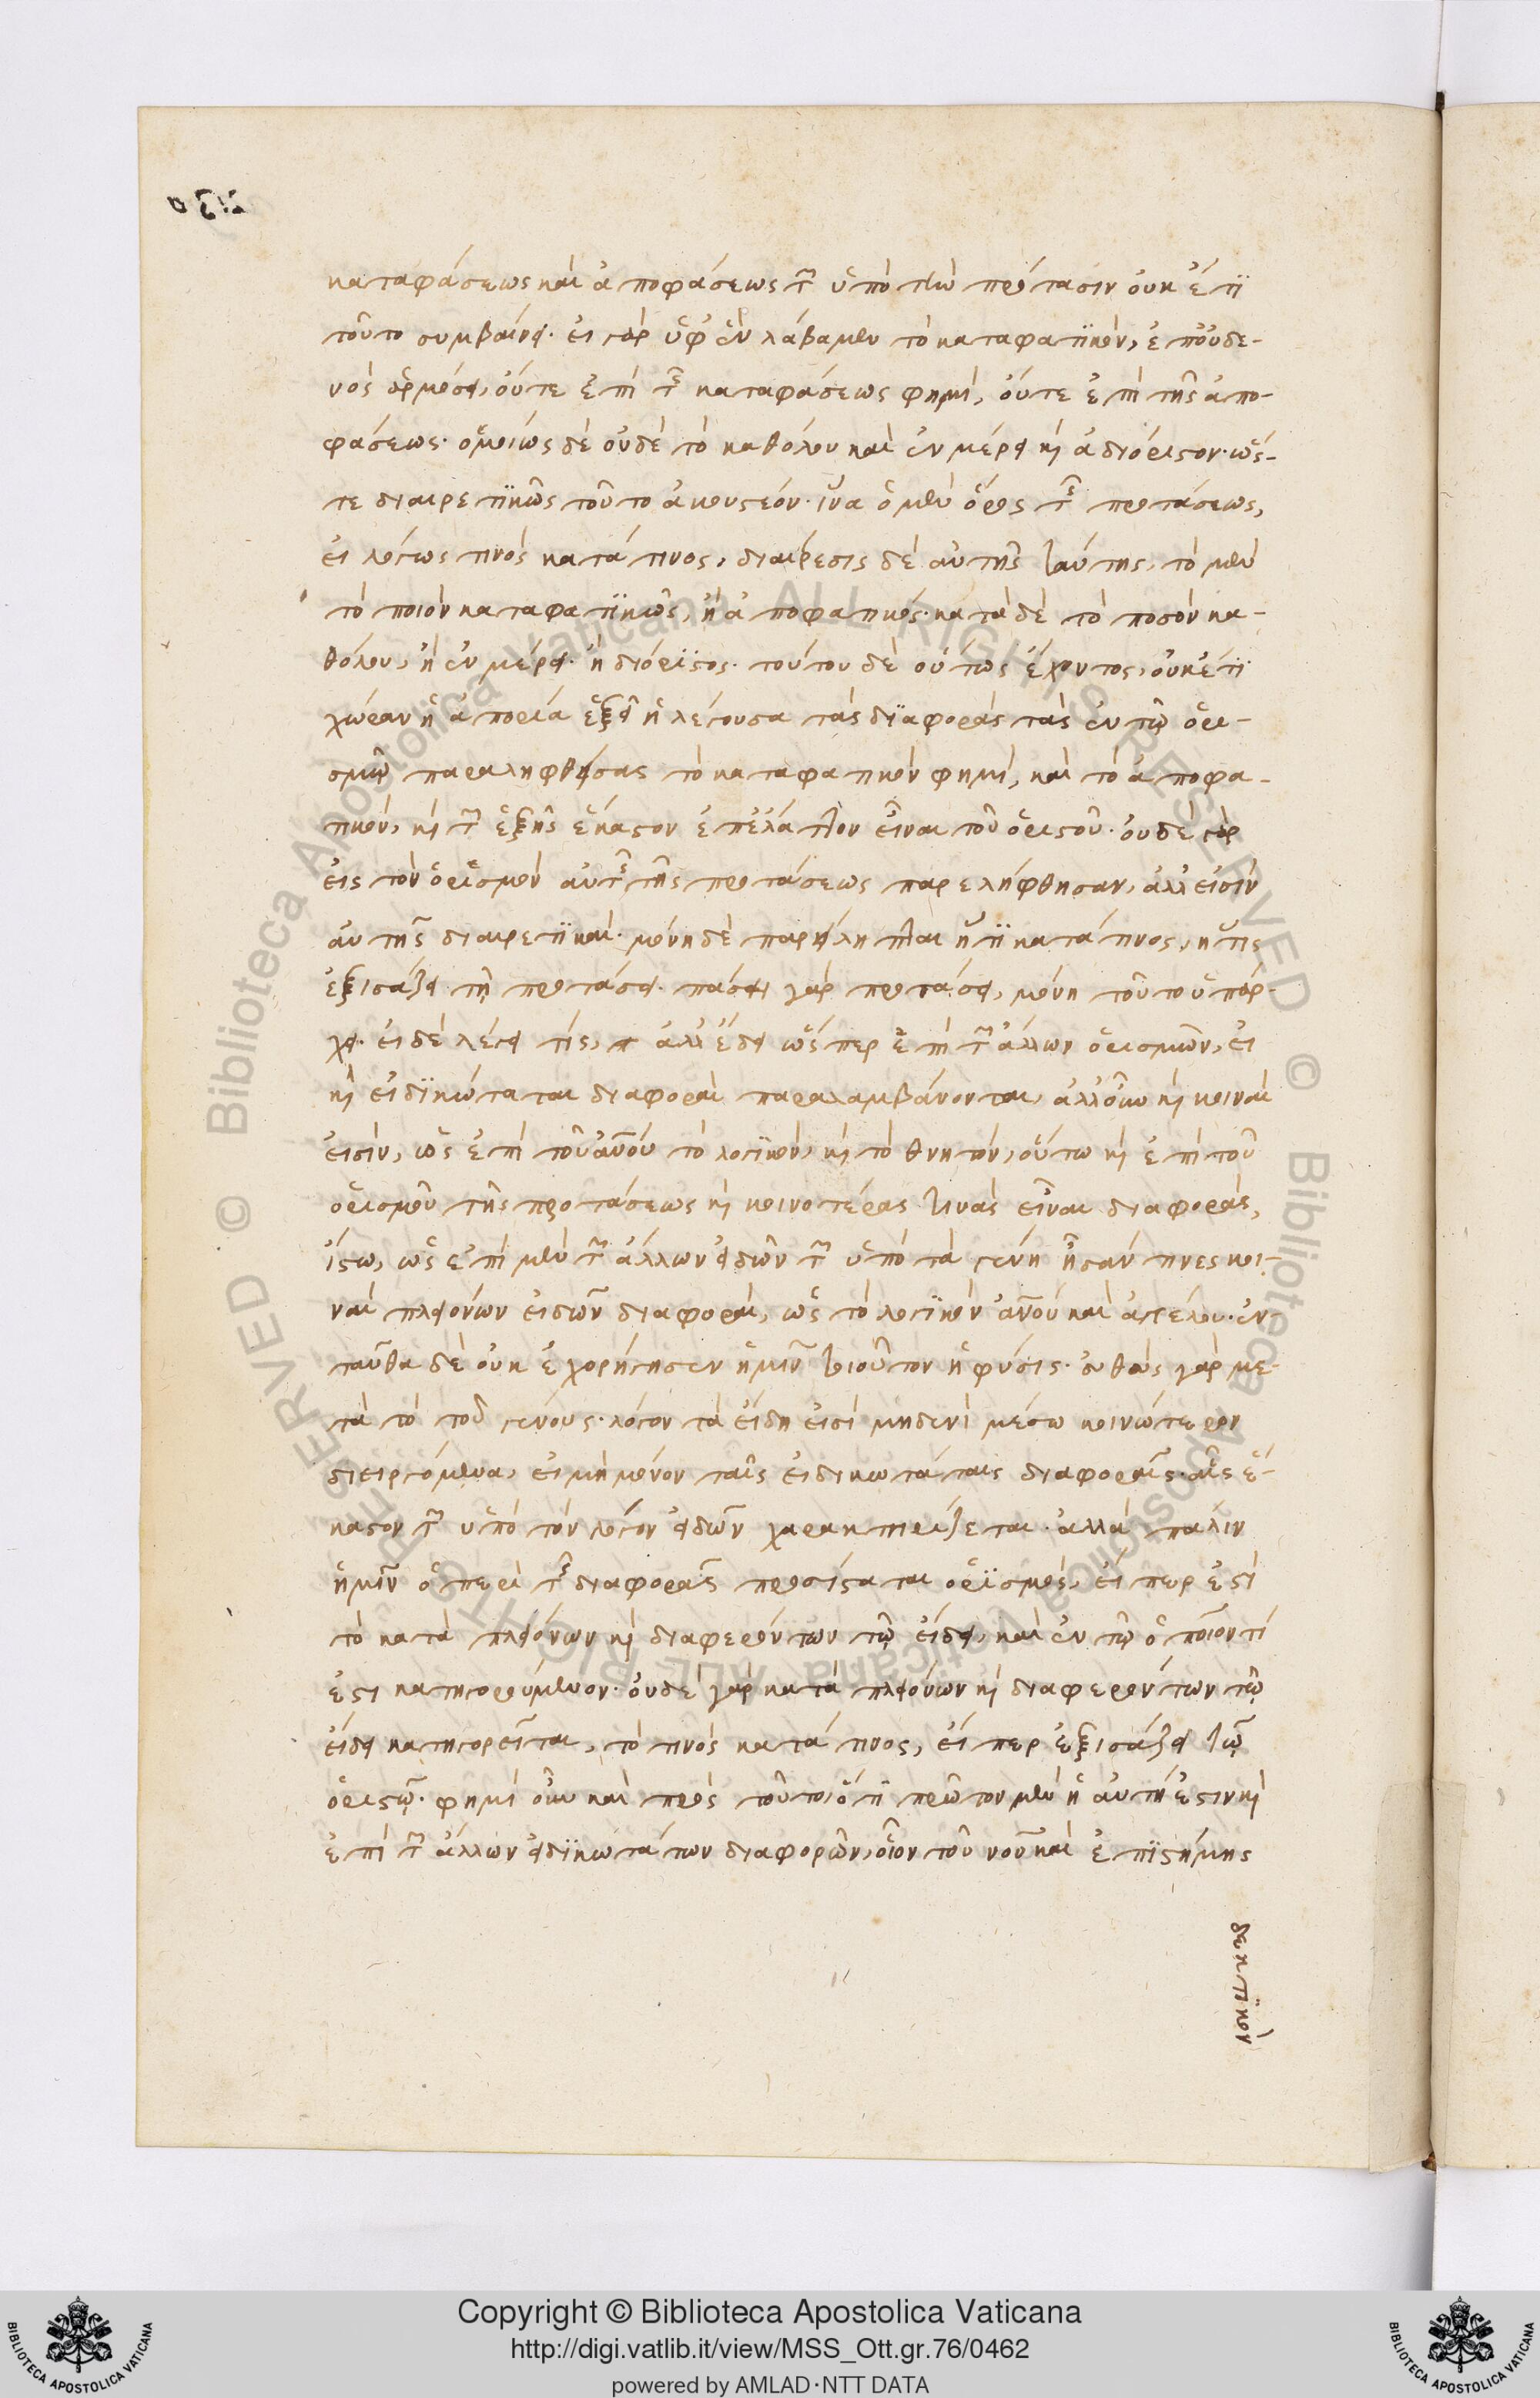 καταφάσεως καὶ ἀποφάσεως τῶν ὑπὸ τὴν πρότασιν οὐκ ἔτι
τοῦτο συμβαίνει. εἰ γὰρ ὑφ' ἓν λάβωμεν τὸ καταφατικὸν, ἐπ' οὐδε-
νὸς ἁρμόσει, οὔτε ἐπὶ τῆς καταφάσεως φημὶ, οὔτε ἐπὶ τῆς ἀπο-
φάσεως. ὁμοίως δὲ οὐδὲ τὸ καθόλου καὶ ἐν μέρει καὶ ἀδιόριστον. ὥσ-
τε διαιρετικῶς τοῦτο ἀκουστέον. ἵνα ὁ μὲν ὅρος τῆς προτάσεως,
εἰ λόγως τινὸς κατά τινος, διαίρεσις δὲ αὐτῆς ταύτης, τὸ μὲν
τὸ ποιὸν καταφατικῶς, ἢ ἀποφατικός. κατὰ δὲ τὸ ποσὸν κα-
θόλου, ἢ ἐν μέρει. ἢ διόριστος. τούτου δὲ οὕτως ἔχοντος, οὐκέτι
χώραν ἡ ἀπορία ἕξει ἡ λέγουσα τὰς διαφορὰς τὰς ἐν τῷ ὁρι-
σμῷ παραληφθείσας τὸ καταφατικὸν φημὶ, καὶ τὸ ἀποφα-
τικὸν, καὶ τῶν ἑξῆς ἕκαστον ἐπ' ἔλαττον εἶναι τοῦ ὁριστοῦ. οὐδὲ γὰρ
εἰς τὸν ὁρισμὸν αὐτῆς τῆς προτάσεως παρελήφθησαν, ἀλλ' εἰσὶν
αὐτῆς διαιρετικαί. μόνη δὲ παρείληπται ἡ τὶ κατά τινος, ἥτις
ἐξισάζει τῇ προτάσει. πάσει γὰρ προτάσει, μόνη τοῦτο ὑπάρ-
χει. εἰ δὲ λέγει τίς, ἀλλ' ἔδει ὥσπερ ἐπὶ τῶν ἄλλων ὁρισμῶν, εἰ
καὶ εἰδικώταται διαφοραὶ παραλαμβάνονται, ἀλλ' οὖν καὶ κοιναὶ
εἰσὶν, ὡς ἐπὶ τοῦ ἀνου τὸ λογικὸν, καὶ τὸ θνητὸν, οὕτω καὶ ἐπὶ τοῦ
ὁρισμοῦ τῆς προτάσεως καὶ κοινοτέρας τινὰς εἶναι διαφορὰς,
ἴστω, ὡς ἐπὶ μὲν τῶν ἄλλων εἰδῶν τῶν ὑπὸ τὰ γένη ἦσάν τινες κοι-
ναὶ πλειόνων εἰδῶν διαφοραὶ, ὡς τὸ λογικὸν ἀνου καὶ ἀγγέλου. ἐν-
ταῦθα δὲ οὐκ ἐχορήγησεν ἡμῖν τοιοῦτον ἡ φύσις. εὐθὺς γὰρ με-
τὰ τὸ τοῦ γένους. λόγον τὰ εἴδη εἰσὶ μηδενὶ μέσω κοινώτερον
διειργόμενα, εἰ μὴ μόνον ταῖς εἰδικωτάταις διαφοραῖς. αἷς ἕ-
καστον τῶν ὑπὸ τὸν λόγον εἰδῶν χαρακτηρίζεται. ἀλλὰ πάλιν
ἡμῖν ὁ περὶ τῆς διαφορᾶς προσίσταται ὁρισμὸς, εἴπερ ἐστὶ
τὸ κατὰ πλειόνων καὶ διαφερόντων τῷ εἴδει, καὶ ἐν τῷ ὁποῖον τί
ἐστι κατηγορούμενον. οὐδὲ γὰρ κατὰ πλειόνων καὶ διαφερόντων τῷ
εἴδει κατηγορεῖται, τὸ τινὸς κατά τινος, εἴπερ ἐξισάζει τῷ
ὁριστῷ. φημὶ οὖν καὶ πρὸς τοῦτο, ὅτι πρῶτον μὲν ἡ αὐτὴ ἐστιν καὶ
ἐπὶ τῶν ἄλλων εἰδικωτάτων διαφορῶν, οἷον τοῦ νοῦ καὶ ἐπιστήμης
δεκτικὸν